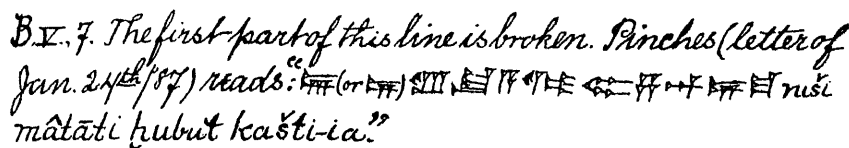 B.V., 7. The first part of this line is broken. Pinches (letter of
Jan. 24th/87) reads: “ (or ) ruši
mâtāti ḫubut kašti-ia.”